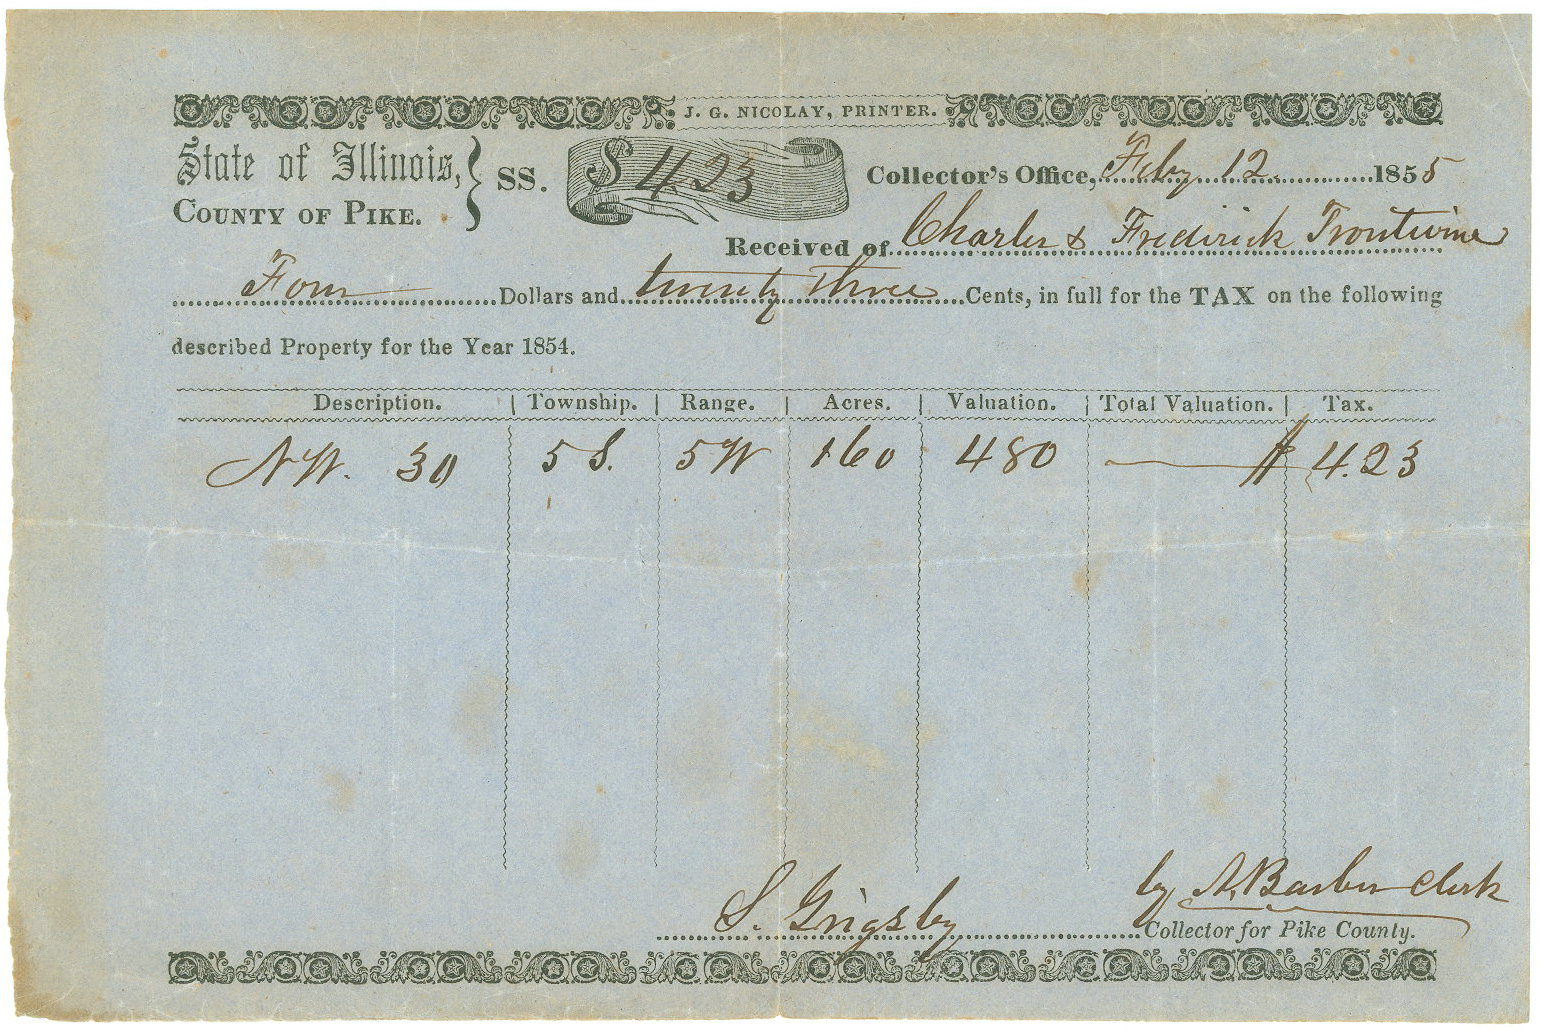 J. G. NICOLAY, PRINTER.
State of Illinois, } SS. $4.23 Collector's Office, Feby 12 1855
COUNTY OF PIKE.
Received of Charles & Frederick Troutwine
Four Dollars and twenty three Cents, in full for the TAX on the following
described Property for the Year 1854.
Description. | Township. | Range. | Acres. | Valuation. | Total Valuation. | Tax.
N W. 30 5 S. 5 W 160 480 — $ 4.23
by A. Barber Clerk
S. Grigsby Collector for Pike County.